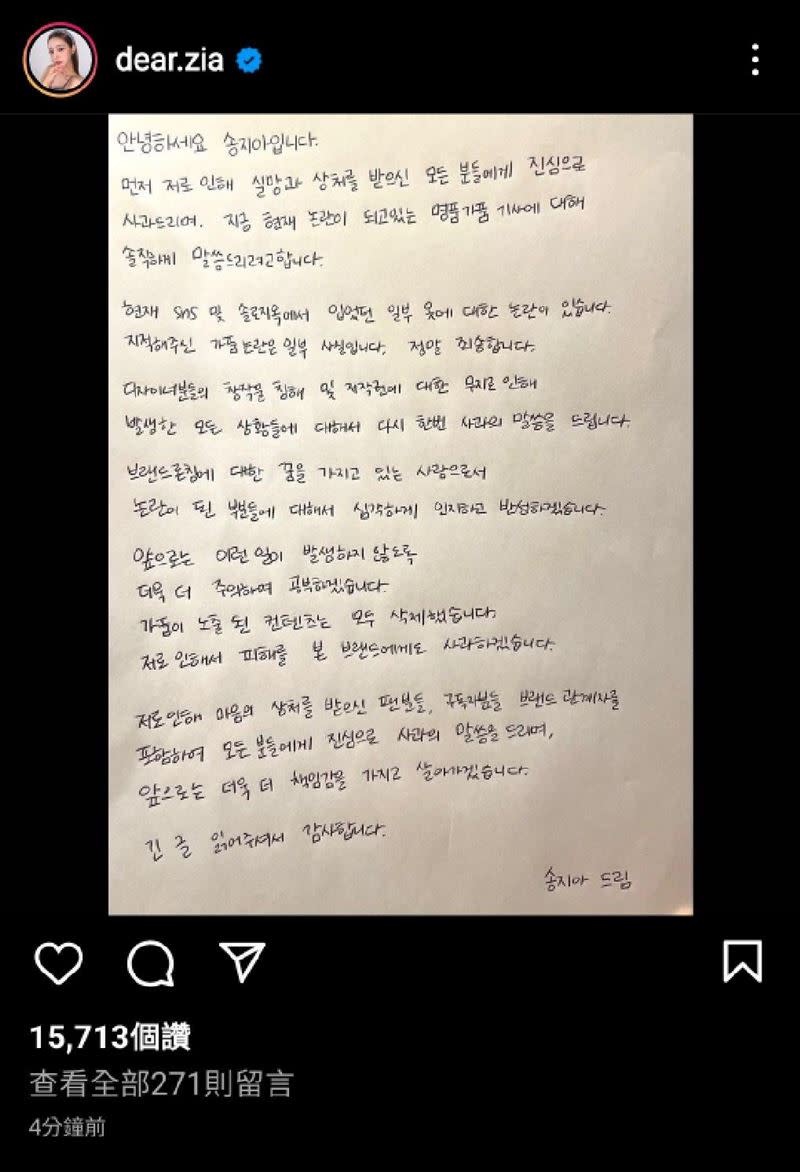 dear.zia
안녕하세요 송지아입니다.
먼저 저로 인해 실망과 상처를 받으신 모든 분들에게 진심으로
사과드리며. 지금 현재 논란이 되고있는 명품가품 기사에 대해
솔직하게 말씀드리려고합니다.
현재 sns 및 솔로지옥에서 입었던 일부 옷에 대한 논란이 있습니다.
지적해주신 가품논란은 일부 사실입니다. 정말 죄송합니다.
디자이너분들의 창작물 침해 및 저작권에 대한 무지로 인해
발생한 모든 상황들에 대해서 다시 한번 사과의 말씀을 드립니다.
브랜드론칭에 대한 꿈을 가지고 있는 사람으로서
논란이 된 부분들에 대해서 심각하게 인지하고 반성하겠습니다.
앞으로는 이런 일이 발생하지 않도록
더욱 더 주의하며 공부하겠습니다.
가품이 노출 된 컨텐츠는 모두 삭제했습니다.
저로 인해서 피해를 본 브랜드에게도 사과하겠습니다.
저로인해 마음의 상처를 받으신 팬분들, 구독자분들 브랜드 관계자를
포함하여 모든 분들에게 진심으로 사과의 말씀을 드리며,
앞으로는 더욱 더 책임감을 가지고 살아가겠습니다.
긴 글 읽어주셔서 감사합니다.
송지아 드림
15,713個讚
查看全部271則留言
4分鐘前